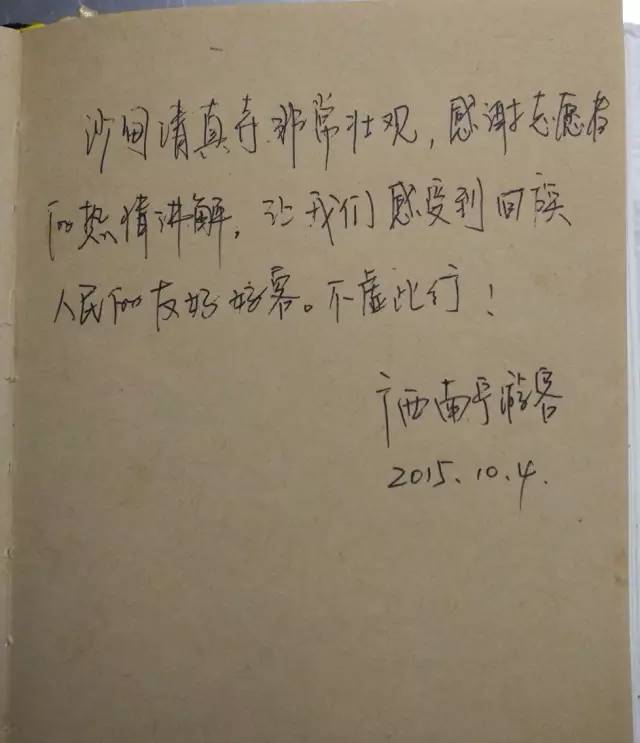 沙甸清真寺非常壮观，感谢志愿者
的热情讲解，让我们感受到回族
人民的友好好客。不虚此行！
广西南宁游客
2015.10.4.